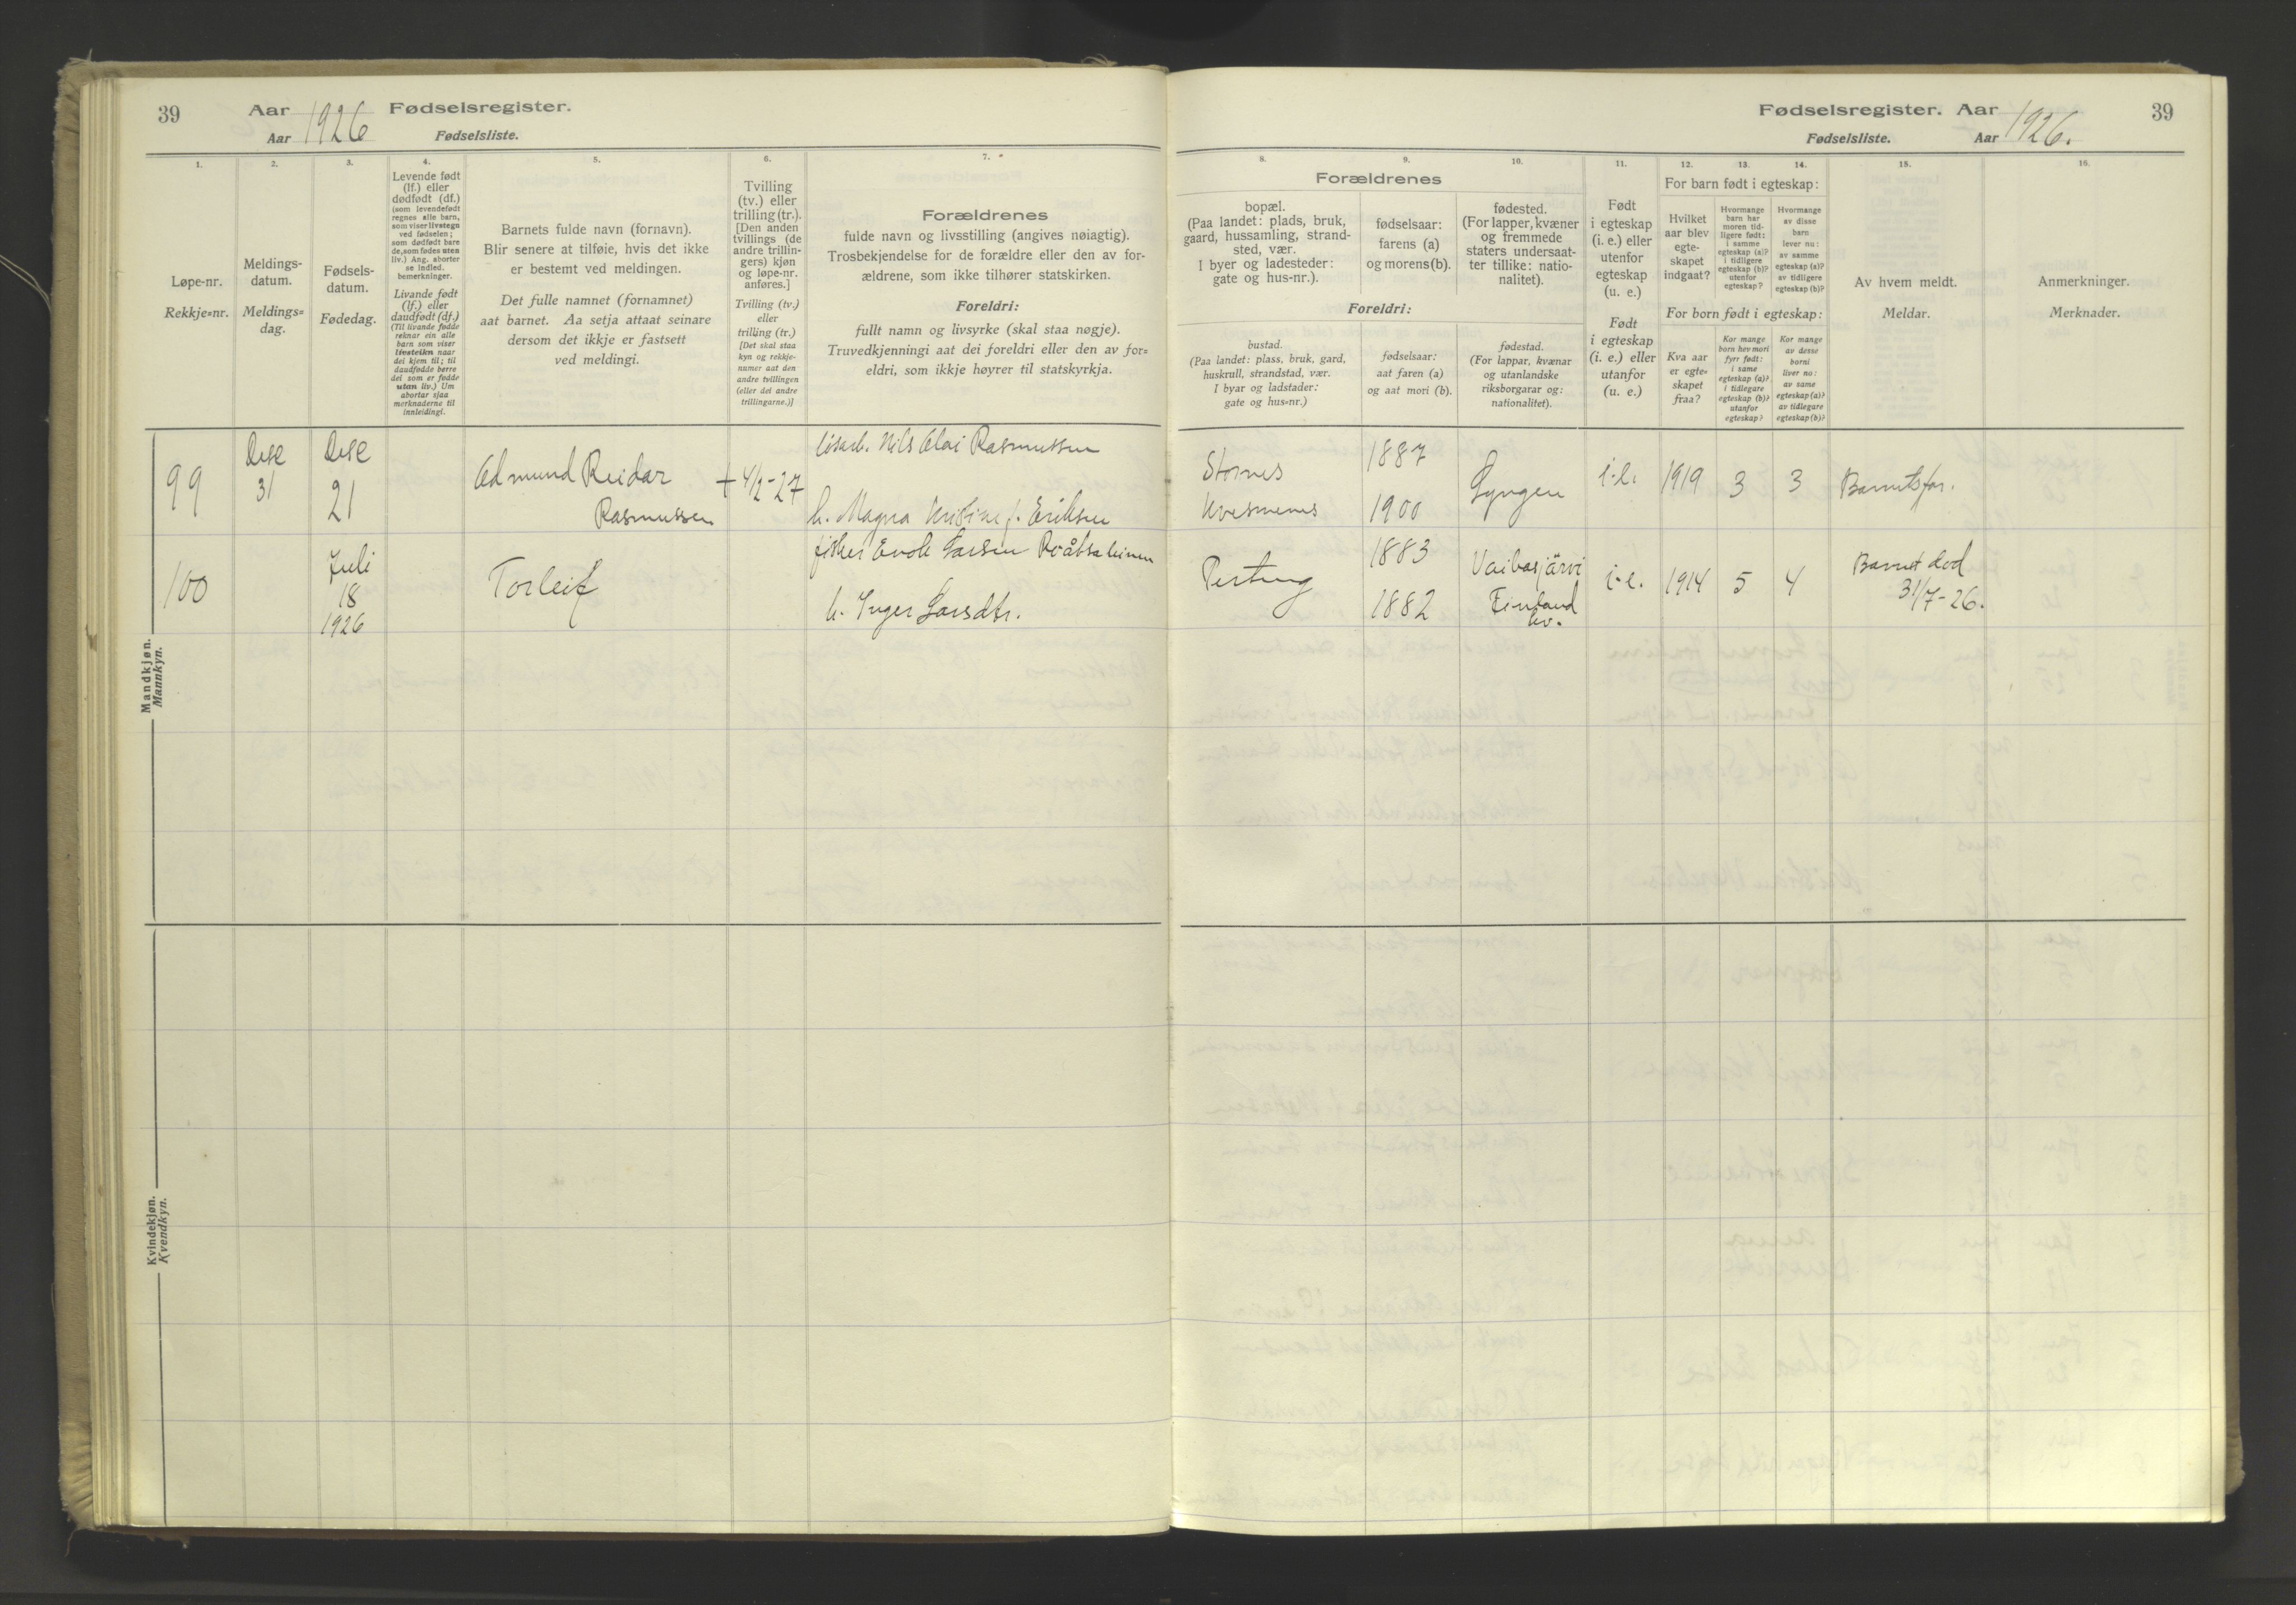 39
Aar 1926 Fødselsregister.
Aar Fødselsliste.
1.
Løpe-nr.
Rekkje=nr.
2.
Meldings-
datum.
Meldings=
dag.
3.
Fødsels-
datum.
Fødedag.
4.
Levende født
(lf.) eller
dødfødt (df.)
(som levendefødt
regnes alle barn,
som viser livstegn
ved fødselen;
som dødfødt bare
de, som fødes uten
liv.) Ang. aborter
se indled.
bemerkninger.
Livande født
(lf.) eller
daudfødt (df.)
(Til livande fødde
reknar ein alle
barn som viser
livsteikn naar
dei kjem til; til
daudfødde berre
dei som er fødde
utan liv.) Um
abortar sjaa
merknaderne til
innleidingi.
5.
Barnets fulde navn (fornavn).
Blir senere at tilføie, hvis det ikke
er bestemt ved meldingen.
Det fulle namnet (fornamnet)
aat barnet. Aa setja attaat seinare
dersom det ikkje er fastsett
ved meldingi.
6.
Tvilling
(tv.) eller
trilling (tr.).
[Den anden
tvillings (de
andre trillin-
gers) kjøn
og løpe-nr.
anføres.]
Tvilling (tv.)
eller
trilling (tr.)
[Det skal staa
kyn og rekkje-
numer aat den
andre tvillingen
(eller dei andre
trillingarne.)]
7.
Forældrenes
fulde navn og livsstilling (angives nøiagtig).
Trosbekjendelse for de forældre eller den av for-
ældrene, som ikke tilhører statskirken.
Foreldri:
fullt namn og livsyrke (skal staa nøgje).
Truvedkjenningi aat dei foreldri eller den av for=
eldri, som ikkje høyrer til statskyrkja.
Mandkjøn.
Mannkyn.
99
Dese
31
Dese
21
Edmund Reidar
Rasmussen
+ 4/2-27
løsarb. Nils Olai Rasmussen
h. Magna Kristine f. Eriksen
100
Juli
18
1926
Torleif
fisker Enok Larsen
h. Inger Larsdtr.
Kvindekjøn.
Kvendkyn.
Fødselsregister. Aar 1926.
Fødselsliste. Aar
39
8.
Forældrenes
bopæl.
(Paa landet: plads, bruk,
gaard, hussamling, strand-
sted, vær.
I byer og ladesteder:
gate og hus-nr.).
Foreldri:
bustad.
(Paa landet: plass, bruk, gard,
huskrull, strandstad, vær.
I byar og ladstader:
gate og hus=nr.)
9.
fødselsaar:
farens (a)
og morens (b).
fødselsaar:
aat faren (a)
og aat mori (b).
10.
fødested.
(For lapper, kvæner
og fremmede
staters undersaat-
ter tillike: natio-
nalitet).
fødestad.
(For lappar, kvænar
og utanlandske
riksborgarar og:
nationalitet).
11.
Født
i egteskap
(i. e.) eller
utenfor
egteskap
(u. e.)
Født
i egteskap
(i. e.) eller
utanfor
(u. e.)
For barn født i egteskap:
12.
Hvilket
aar blev
egte-
skapet
indgaat?
13.
Hvormange
barn har
moren tid-
ligere født:
i samme
egteskap (a)?
i tidligere
egteskap (b)?
utenfor
egteskap?
14.
Hvormange
av disse
barn
lever nu:
av samme
egteskap (a)?
av tidligere
egteskap (b)?
For born født i egteskap:
Kva aar
er egte=
skapet
fraa?
Kor mange
born hev mori
fyrr født:
i same
egteskap (a)?
i tidlegare
egteskap (b)?
utanfor
egteskap?
Kor mange
av desse
borni
liver no:
av same
egteskap (a)?
av tidlegare
egteskap (b)?
15.
Av hvem meldt.
Meldar.
16.
Anmerkninger.
Merknader.
Stornes
Kvesmenes
1887
1900
Lyngen
i.e.
1919
3
3
Barnets far.
Pertung
1883
1882
Vaibasjärvi
Finland
i.e.
1914
5
4
Barnet død
31/7-26.